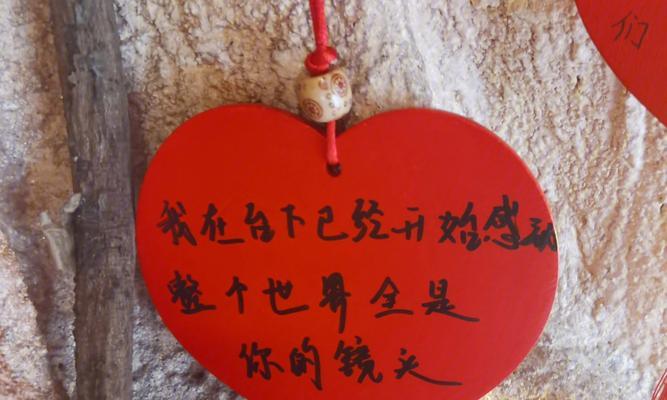 们
我在台下已经开始感动
整个世界全是
你的镜头